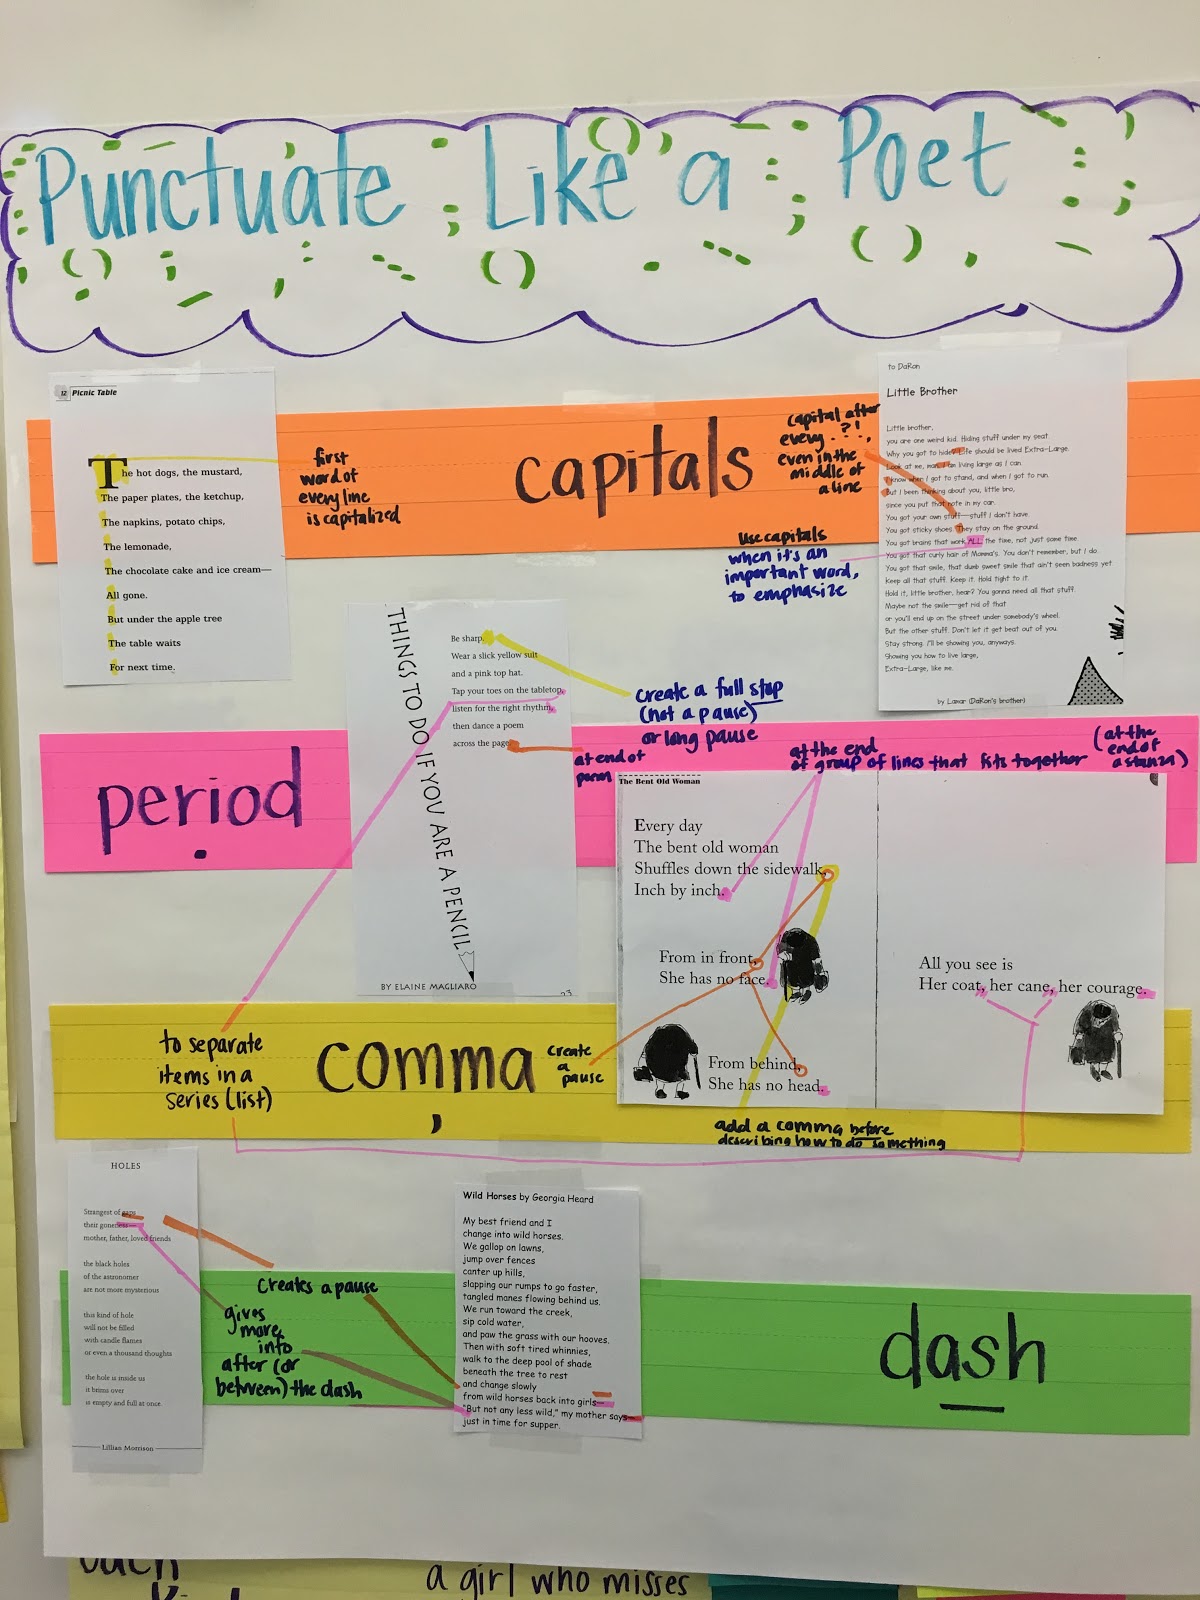 Punctuate Like a Poet
12 Picnic Table
The hot dogs, the mustard,
The paper plates, the ketchup,
The napkins, potato chips,
The lemonade,
The chocolate cake and ice cream—
All gone.
But under the apple tree
The table waits
For next time.
first
word of
every line
is capitalized
capitals
capital after
every . ? !,
even in the
middle of
a line
use capitals
when it's an
important word,
to emphasize
to DaRon
Little Brother
Little brother,
you are one weird kid. Hiding stuff under my seat.
Why you got to hide? Life should be lived Extra-Large.
Look at me, man, I am living large as I can.
I know when I got to stand, and when I got to run.
But I been thinking about you, little bro,
since you put that note in my car.
You got your own stuff—stuff I don't have.
You got sticky shoes. They stay on the ground.
You got brains that work ALL the time, not just some time.
You got that curly hair of Momma's. You don't remember, but I do.
You got that smile, that dumb sweet smile that ain't seen badness yet
Keep all that stuff. Keep it. Hold tight to it.
Hold it, little brother, hear? You gonna need all that stuff.
Maybe not the smile—get rid of that
or you'll end up on the street under somebody's wheel.
But the other stuff. Don't let it get beat out of you.
Stay strong. I'll be showing you, anyways.
Showing you how to live large,
Extra-Large, like me.
by Lamar (DaRon's brother)
THINGS TO DO IF YOU ARE A PENCIL
Be sharp.
Wear a slick yellow suit
and a pink top hat.
Tap your toes on the tabletop,
listen for the right rhythm,
then dance a poem
across the page.
BY ELAINE MAGLIARO
23
create a full stop
(not a pause)
or long pause
period
.
at end of
poem
at the end
of group of lines that fits together
(at the
end of
a stanza)
The Bent Old Woman
Every day
The bent old woman
Shuffles down the sidewalk,
Inch by inch.
From in front,
She has no face.
From behind,
She has no head.
All you see is
Her coat, her cane, her courage.
to separate
items in a
series (list)
comma
,
create
a
pause
add a comma before
describing how to do something
HOLES
Strangest of gaps
their goneness—
mother, father, loved friends
the black holes
of the astronomer
are not more mysterious
this kind of hole
will not be filled
with candle flames
or even a thousand thoughts
the hole is inside us
it brims over
is empty and full at once
Lillian Morrison
creates a pause
gives
more
info
after (or
between) the dash
Wild Horses by Georgia Heard
My best friend and I
change into wild horses.
We gallop on lawns,
jump over fences
canter up hills,
slapping our rumps to go faster,
tangled manes flowing behind us.
We run toward the creek,
sip cold water,
and paw the grass with our hooves.
Then with soft tired whinnies,
walk to the deep pool of shade
beneath the tree to rest
and change slowly
from wild horses back into girls—
"But not any less wild," my mother says—
just in time for supper.
dash
—
a girl who misses